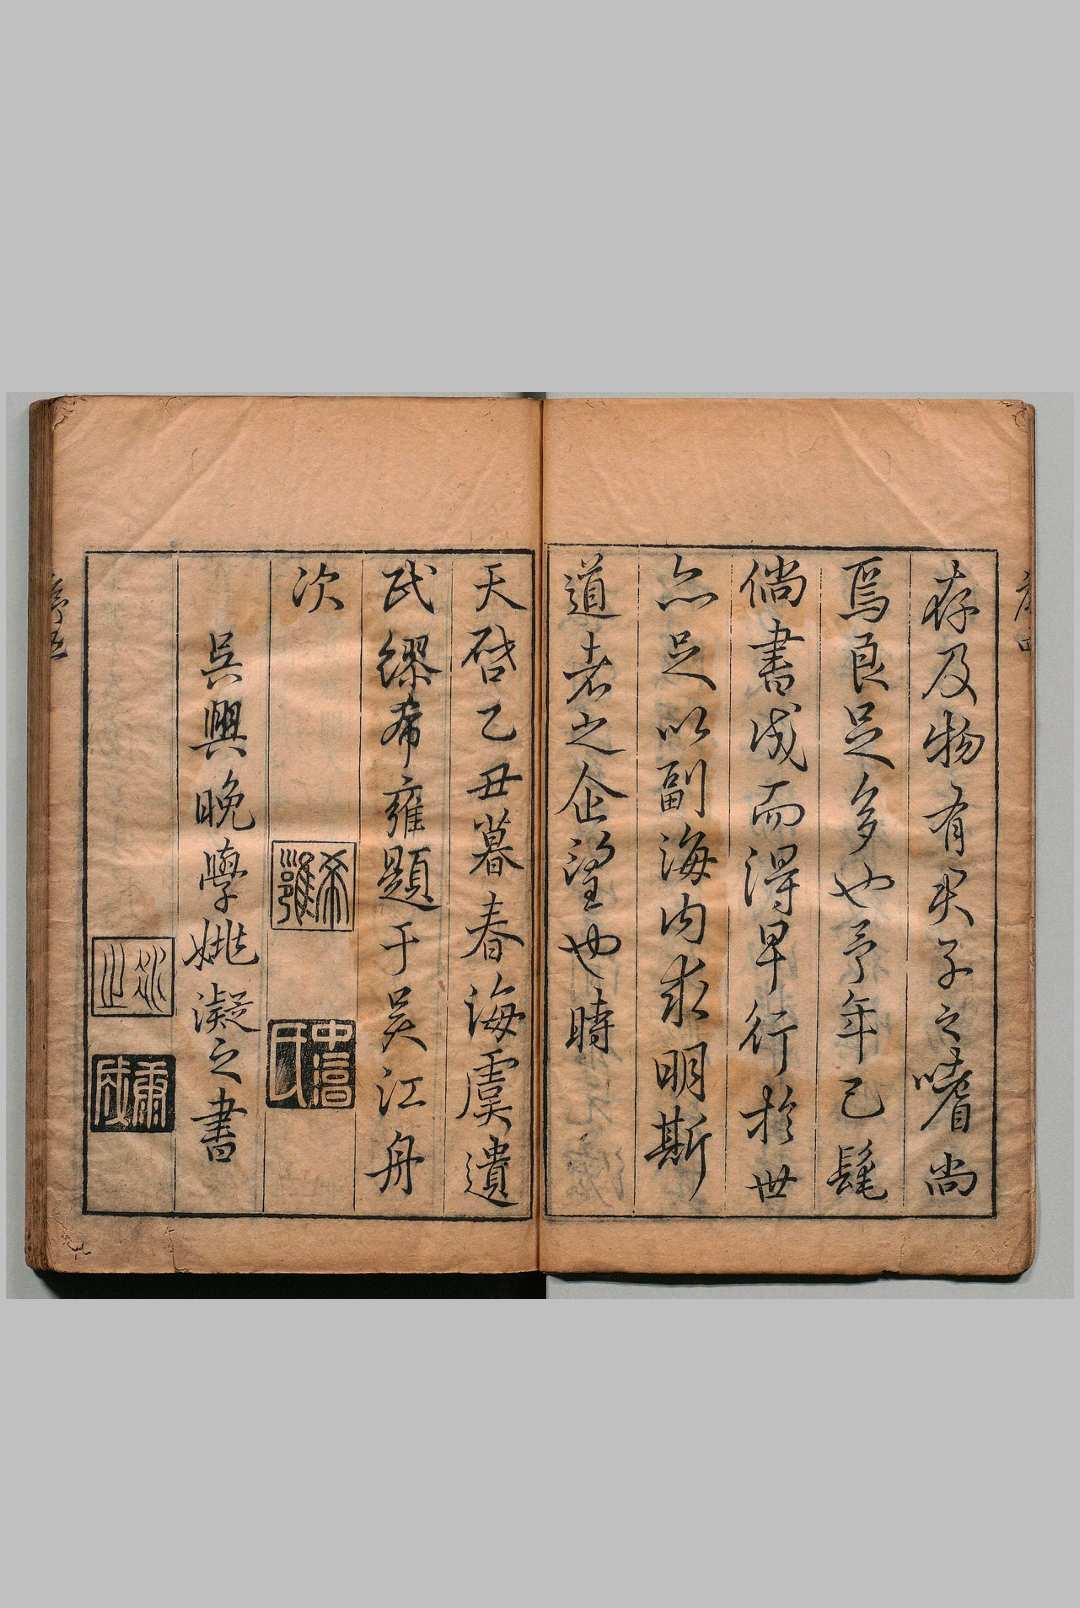 序四
存及物有子之嗜尚
焉良足多也予年已髦
倘書成而得早行於世
亦足以副海内求明斯
道者之企望也時
天啓乙丑暮春海虞遺
民繆希雍題于吴江舟
次
希雍
中淳氏
吴興晚學姚凝之書
序五